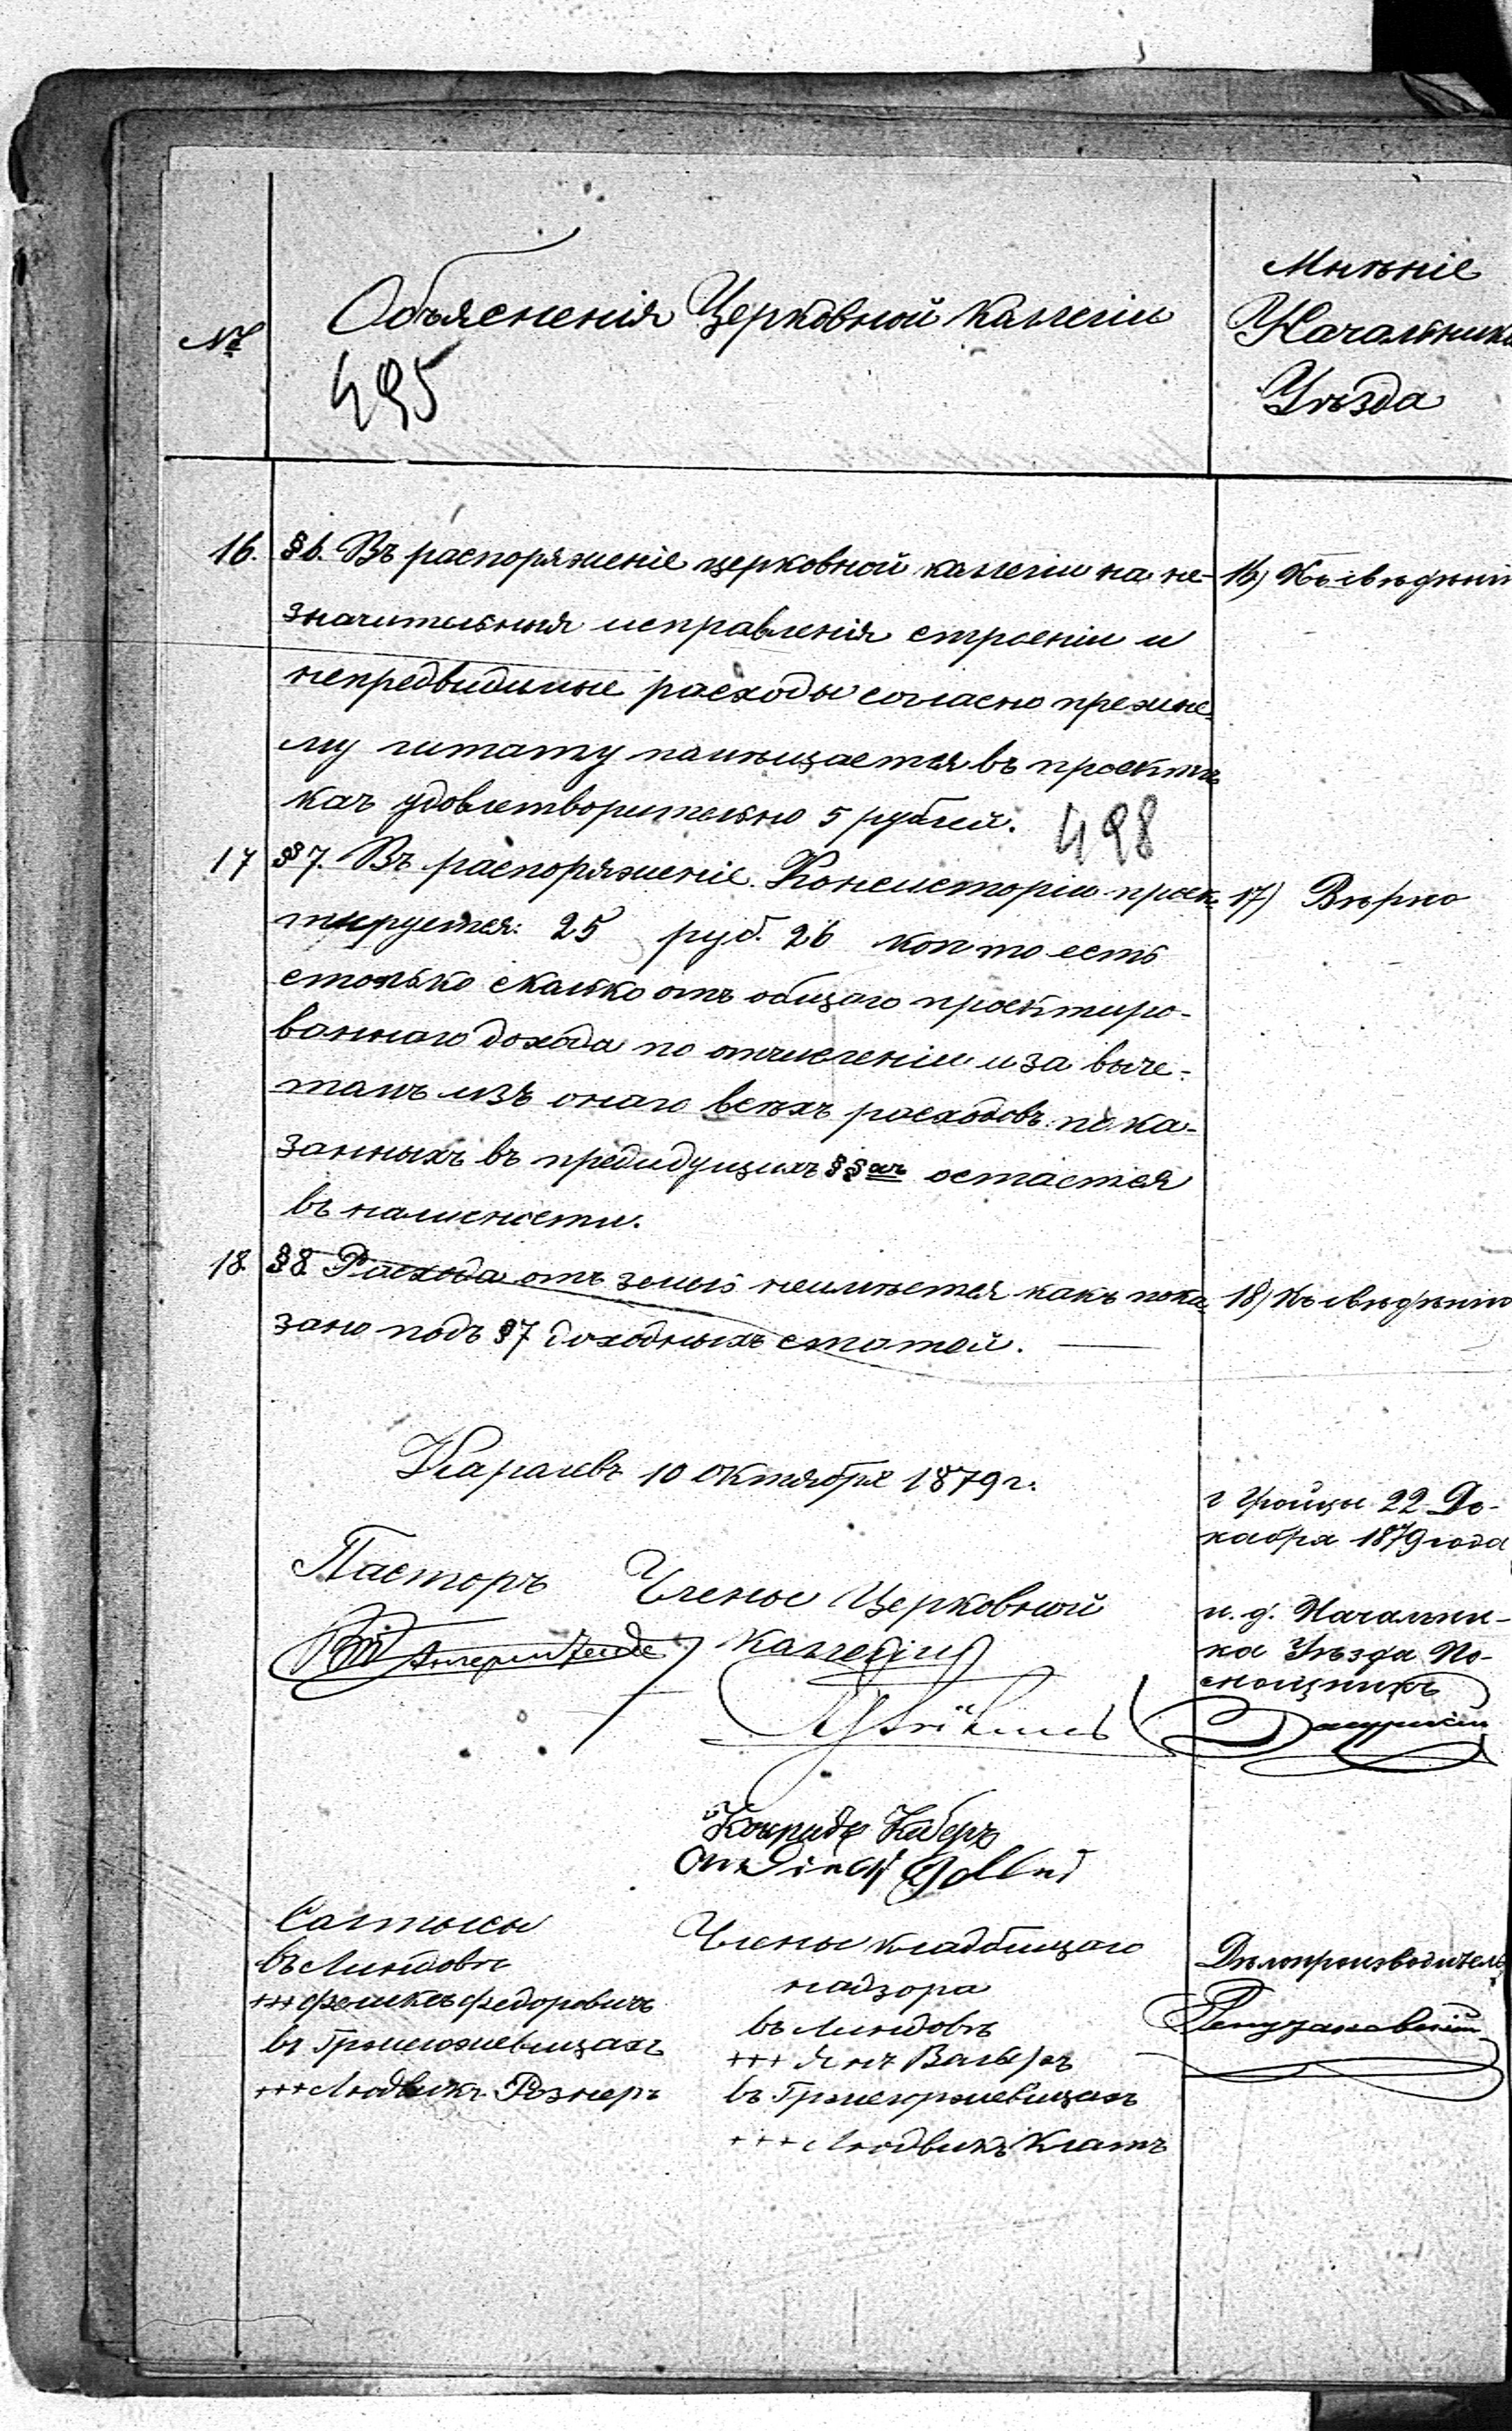 №
Объясненія Церковной Каллегіи
495
Мнѣніе
Начальника
Уѣзда
16. §6. Въ распоряженіе церковной каллегіи на не-
значительныя исправленія строеніи и
непредвидимые расходы согласно прежне-
му штату помѣщается въ проектѣ
какъ удовлетворительно 5 рублей.
498
16) Къ свѣдѣнію
17 §§7. Въ распоряженіе Консисторіи проек-
тируется: 25 руб. 26 коп то есть
столько сколько отъ общаго проектиро-
ваннаго дохода по отчисленіи и за выче-
томъ изъ онаго всѣхъ расходовъ пока-
занныхъ въ предидущихъ §§ахъ остается
въ наличности.
17) Вѣрно
18. §8. Расхода отъ земли неимѣется какъ пока-
зано подъ §7 доходныхъ статей.
18) Къ свѣдѣнію
Каролевъ 10 Октября 1879 г.
Пасторъ
Члены Церковной
Каллегіи
Конрадъ
Солтысы
въ Линдовѣ
+++ Феликсъ Федоровичъ
въ Гржегоржевицахъ
+++ Людвикъ Рознеръ
Члены кладбищаго
надзора
въ Линдовѣ
+++ Янъ
въ Гржегоржевицахъ
+++ Людвикъ Клатъ
г Гройцы 22 Де-
кабря 1879 года
и. д. Начальни-
ка Уѣзда По-
мощникъ
Дѣлопроизводитель